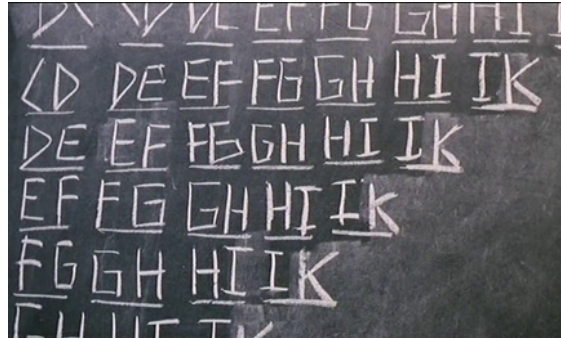 DE EF FG GH HI
CD DE EF FG GH HI IK
DE EF FG GH HI IK
EF FG GH HI IK
FG GH HI IK
GH HI IK